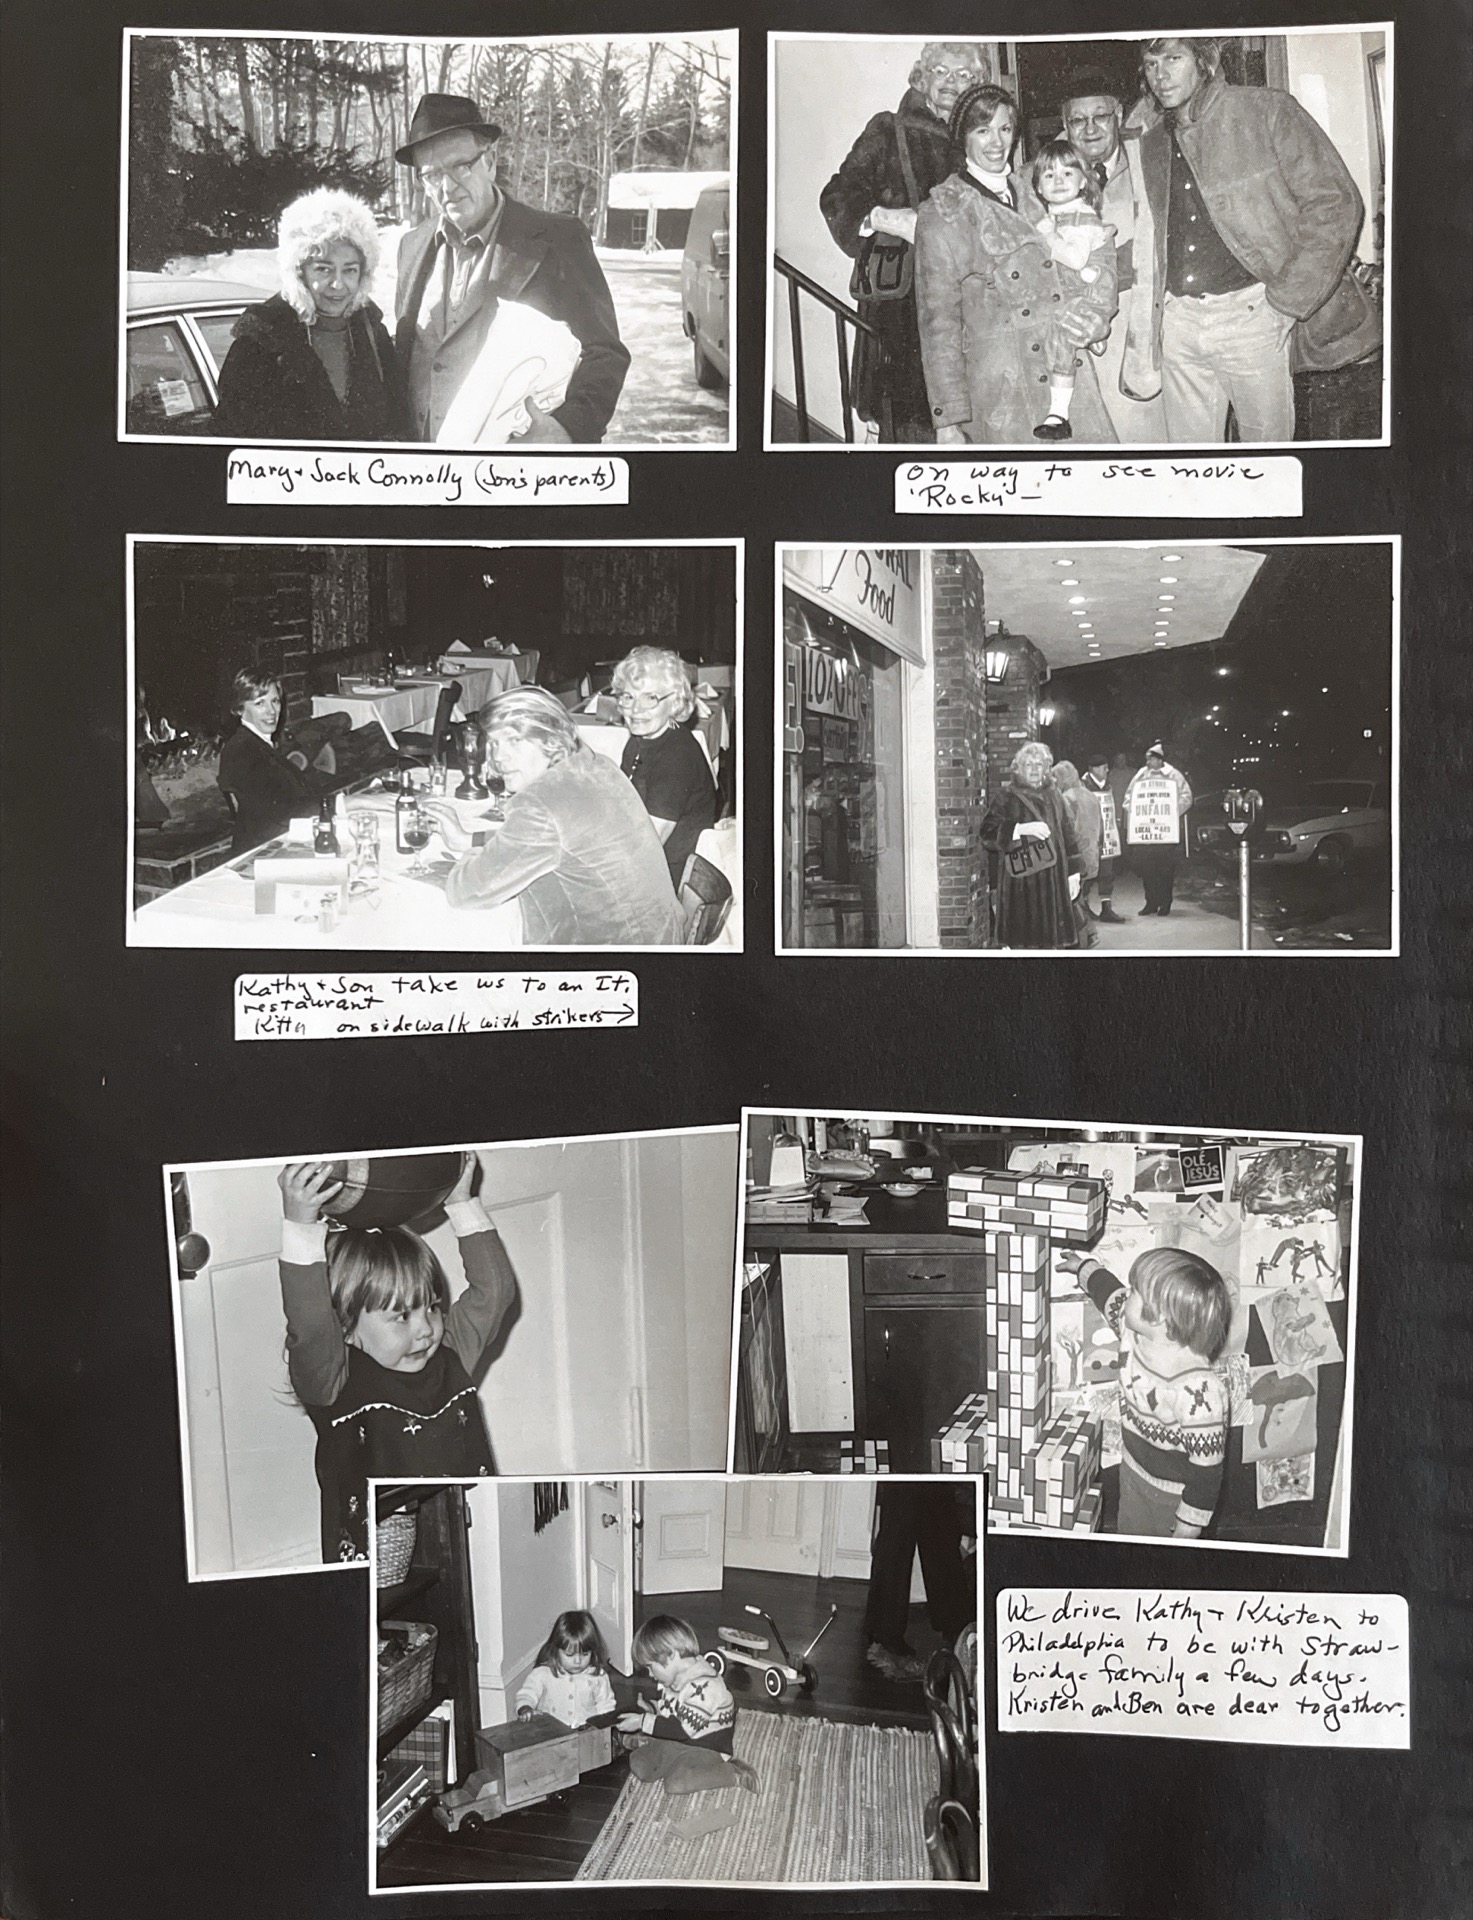 Mary + Jack Connolly (Jon's parents)
on way to see movie
'Rocky' —
RAL
Food
IN STRIKE
THIS EMPLOYER
IS
UNFAIR
TO
LOCAL
I.A.T.S.E.
Kathy + Jon take us to an It.
restaurant
Kitty on sidewalk with strikers →
OLÉ,
JESUS
We drive Kathy + Kristen to
Philadelphia to be with Straw-
bridge family a few days.
Kristen and Ben are dear together.